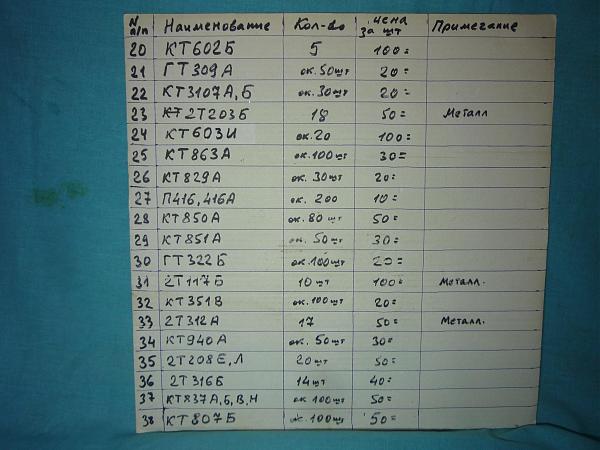 N п/п Наименование Кол-во цена за шт Примечание
20 КТ602Б 5 100=
21 ГТ309А ок. 50шт 20=
22 КТ3107А,Б ок. 30шт 20=
23 КТ 2Т203Б 18 50= Металл
24 КТ603И ок. 20 100=
25 КТ863А ок. 100шт 30=
26 КТ829А ок. 30шт 20=
27 П416,416А ок. 200 10=
28 КТ850А ок. 80 шт 50=
29 КТ851А ок. 50шт 30=
30 ГТ322Б ок. 100шт 20=
31 2Т117Б 10 шт 100= Металл.
32 КТ351В ок. 100шт 20=
33 2Т312А 17 50= Металл.
34 КТ940А ок. 50шт 30=
35 2Т208Е,Л 20шт 50=
36 2Т316Б 14шт 40=
37 КТ837А,Б,В,Н ок 100шт 50=
38 КТ807Б ок. 100шт 50=